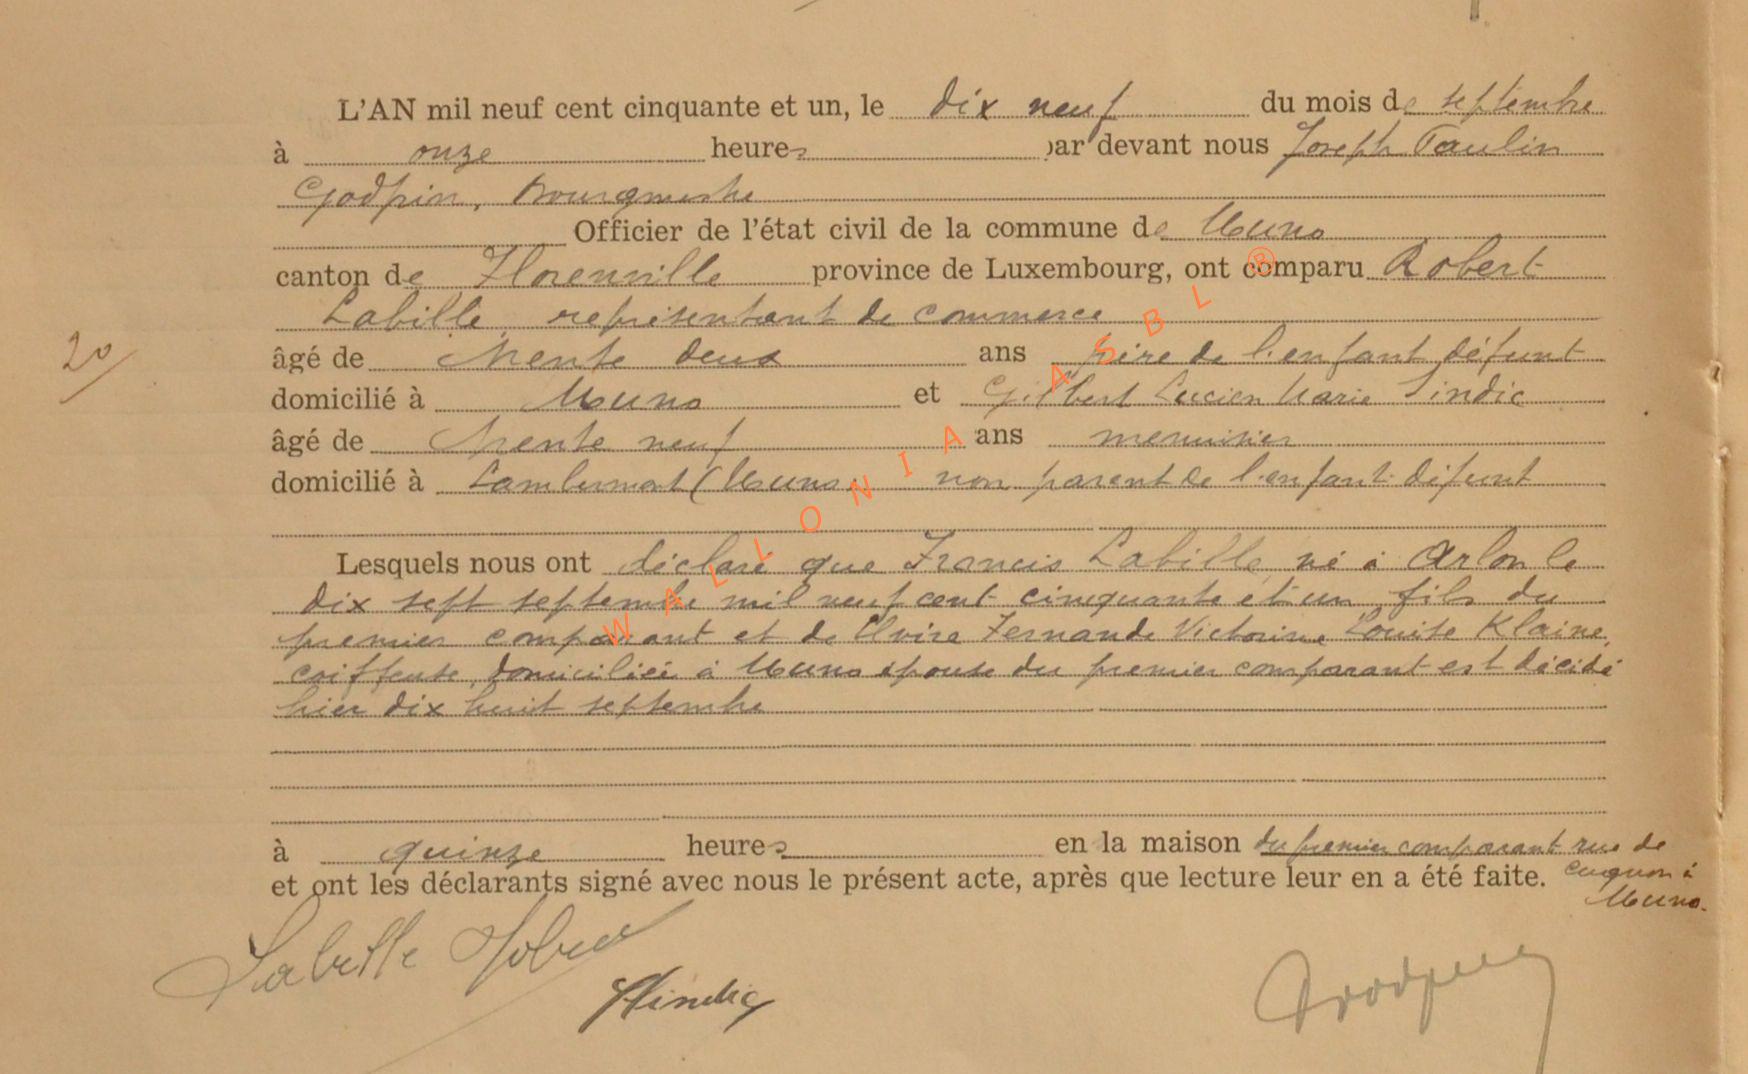 L'AN mil neuf cent cinquante et un, le dix neuf du mois de septembre
à onze heures par devant nous Joseph Paulin
Godfrin, Bourgmestre
Officier de l'état civil de la commune de Muno
canton de Florenville province de Luxembourg, ont comparu Robert
Labille, représentant de commerce
20/ âgé de trente deux ans père de l'enfant défunt
domicilié à Muno et Gilbert Lucien Marie Sindic
âgé de trente neuf ans menuisier
domicilié à Lambermont (Muno non parent de l'enfant défunt
Lesquels nous ont déclaré que Francis Labille né à Arlon le
dix sept septembre mil neuf cent cinquante et un fils du
premier comparant et de Elvire Fernande Victorine Louise Klaine,
coiffeuse, domiciliée à Muno épouse du premier comparant est décédé
hier dix huit septembre
à quinze heures en la maison du premier comparant rue de
et ont les déclarants signé avec nous le présent acte, après que lecture leur en a été faite. Cugnon à
Muno.
Labille
Sindic
WALLONIA ASBL ®